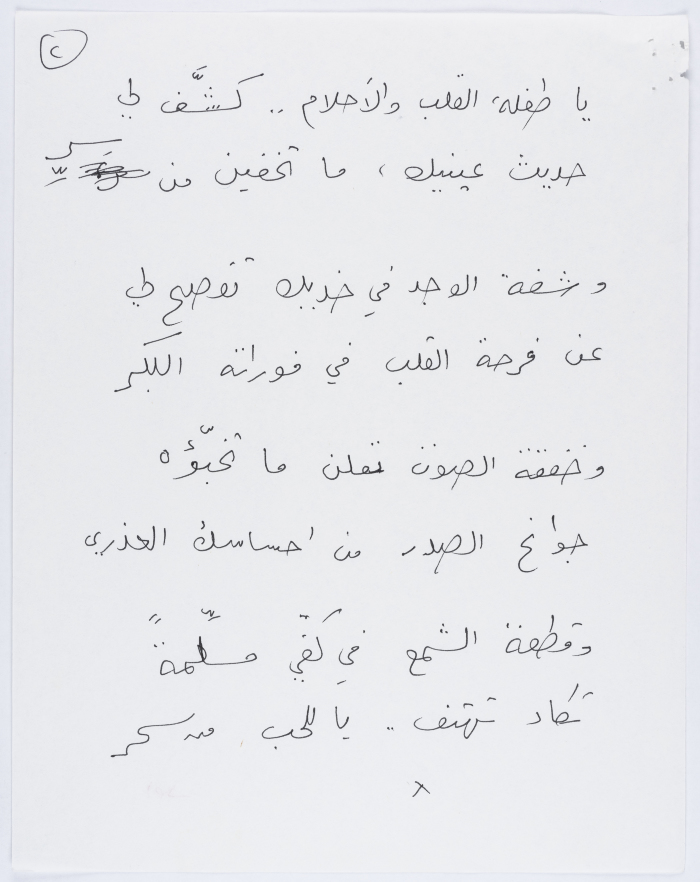 ٢
يا طفلة القلب والأحلام .. كشَّف لي
حديث عينيك ، ما تخفين من سرّ
وشفة الوجد في خديك تفصح لي
عن فرحة القلب في فوراته البكر
وخفقة الصوت تعلن ما تخبّؤه
جوانح الصدر من احساسك العذري
وقطعة الشمع في كفّي مسلّمةً
تكاد تهتف .. يا للحب من سحر
x